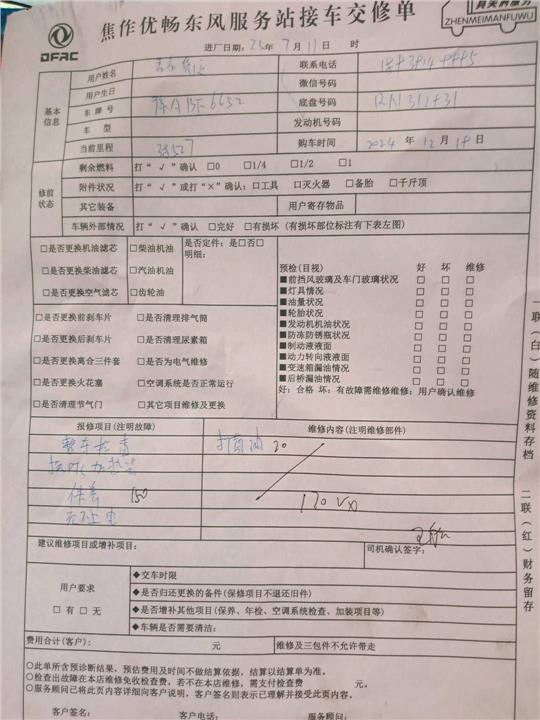 焦作优畅东风服务站接车交修单
DFAC
ZHENMEIMANFUWU
进厂日期：25年7月11日 时
基本信息
用户姓名
联系电话
用户生日
微信号码
车牌号
底盘号码
车型
发动机号码
当前里程
购车时间 2024年12月14日
修前状态
剩余燃料 打“√”确认 □0 □1/4 □1/2 □1
附件状况 打“√”或打“×”确认：□工具 □灭火器 □备胎 □千斤顶
其它装备
用户寄存物品
车辆外部情况 打“√”确认 □完好 □有损坏（有损坏部位标注有下表左图）
□是否更换机油滤芯 □柴油机油
□是否更换柴油滤芯 □汽油机油
□是否更换空气滤芯 □齿轮油
是否定件：是□否□
明细：
□是否更换前刹车片 □是否清理排气筒
□是否更换后刹车片 □是否清理尿素箱
□是否更换离合三件套 □是否为电气维修
□是否更换火花塞 □空调系统是否正常运行
□是否清理节气门 □其它项目维修及更换
预检（目视） 好 坏 维修
■前挡风玻璃及车门玻璃状况 □ □ □
■灯具情况 □ □ □
■油量状况 □ □ □
■轮胎状况 □ □ □
■发动机机油状况 □ □ □
■防冻防锈瓶状况 □ □ □
■制动液液面 □ □ □
■动力转向液液面 □ □ □
■变速箱漏油情况 □ □ □
■后桥漏油情况 □ □ □
好：合格 坏：有故障需维修维修：用户确认维修
报修项目（注明故障）
维修内容（注明维修部件）
整车检查
打黄油 20
保养 150
170
建议维修项目或增补项目：
司机确认签字：
用户要求
□有□无
◆交车时限
◆是否归还更换的备件（保修项目不退还旧件）
◆是否增补其他项目（保养、年检、空调系统检查、加装项目等）
◆车辆是否需要清洁：
费用合计（客户）： 元
维修及三包件不允许带走
○此单所含预诊断结果，预估费用及时间不做结算依据，结算以结算单为准。
○检查出故障在本店维修免收检查费，若不在本店维修，需支付检查费 元。
○服务顾问已将此页内容详细向客户说明，客户签名则表示已理解并接受此页内容。
客户签名：
客户电话：
服务顾问：
一联（白）随维修资料存档
二联（红）财务留存